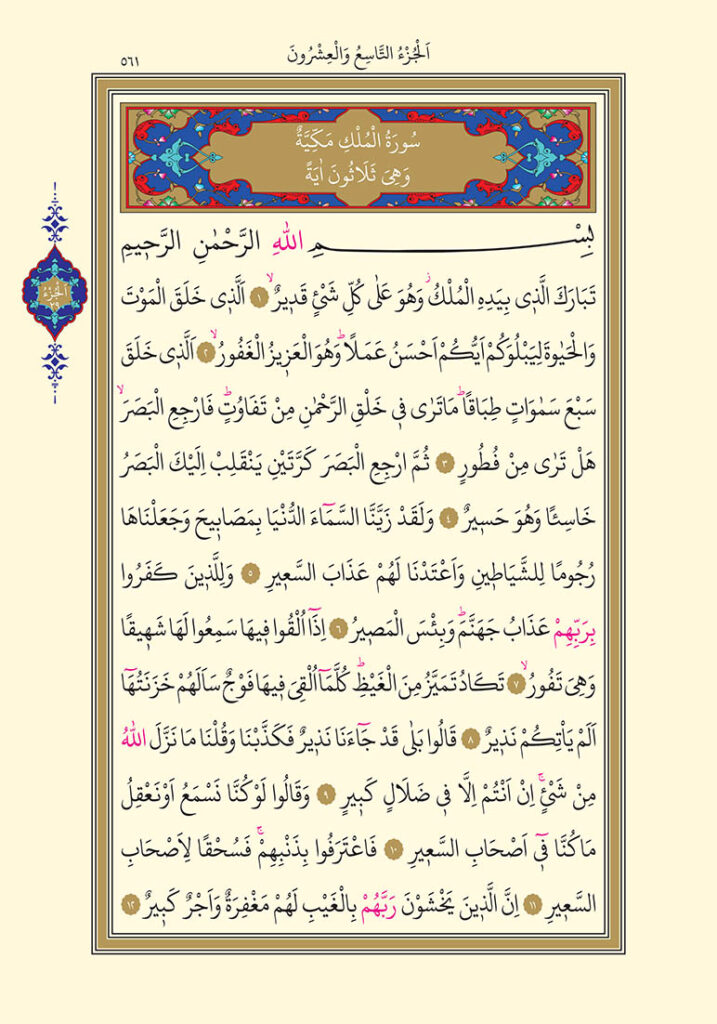 اَلْجُزْءُ التَّاسِعُ وَالْعِشْرُونَ
٥٦١
سُورَةُ الْمُلْكِ مَكِّيَّةٌ
وَهِىَ ثَلَاثُونَ اٰيَةً
بِسْــــــــــــــــمِ اللّٰهِ الرَّحْمٰنِ الرَّحٖيمِ
تَبَارَكَ الَّذٖى بِيَدِهِ الْمُلْكُؗ وَهُوَ عَلٰى كُلِّ شَىْءٍ قَدٖيرٌۙ ﴿١﴾ اَلَّذٖى خَلَقَ الْمَوْتَ
وَالْحَيٰوةَ لِيَبْلُوَكُمْ اَيُّكُمْ اَحْسَنُ عَمَلًاؕ وَهُوَ الْعَزٖيزُ الْغَفُورُۙ ﴿٢﴾ اَلَّذٖى خَلَقَ
سَبْعَ سَمٰوَاتٍ طِبَاقًاؕ مَا تَرٰى فٖى خَلْقِ الرَّحْمٰنِ مِنْ تَفَاوُتٍؕ فَارْجِعِ الْبَصَرَۙ
هَلْ تَرٰى مِنْ فُطُورٍ ﴿٣﴾ ثُمَّ ارْجِعِ الْبَصَرَ كَرَّتَيْنِ يَنْقَلِبْ اِلَيْكَ الْبَصَرُ
خَاسِئًا وَهُوَ حَسٖيرٌ ﴿٤﴾ وَلَقَدْ زَيَّنَّا السَّمَٓاءَ الدُّنْيَا بِمَصَابٖيحَ وَجَعَلْنَاهَا
رُجُومًا لِلشَّيَاطٖينِ وَاَعْتَدْنَا لَهُمْ عَذَابَ السَّعٖيرِ ﴿٥﴾ وَلِلَّذٖينَ كَفَرُوا
بِرَبِّهِمْ عَذَابُ جَهَنَّمَؕ وَبِئْسَ الْمَصٖيرُ ﴿٦﴾ اِذَٓا اُلْقُوا فٖيهَا سَمِعُوا لَهَا شَهٖيقًا
وَهِىَ تَفُورُۙ ﴿٧﴾ تَكَادُ تَمَيَّزُ مِنَ الْغَيْظِؕ كُلَّمَٓا اُلْقِىَ فٖيهَا فَوْجٌ سَاَلَهُمْ خَزَنَتُهَٓا
اَلَمْ يَاْتِكُمْ نَذٖيرٌ ﴿٨﴾ قَالُوا بَلٰى قَدْ جَٓاءَنَا نَذٖيرٌ فَكَذَّبْنَا وَقُلْنَا مَا نَزَّلَ اللّٰهُ
مِنْ شَىْءٍۚ اِنْ اَنْتُمْ اِلَّا فٖى ضَلَالٍ كَبٖيرٍ ﴿٩﴾ وَقَالُوا لَوْ كُنَّا نَسْمَعُ اَوْ نَعْقِلُ
مَا كُنَّا فٖٓى اَصْحَابِ السَّعٖيرِ ﴿١٠﴾ فَاعْتَرَفُوا بِذَنْبِهِمْۚ فَسُحْقًا لِاَصْحَابِ
السَّعٖيرِ ﴿١١﴾ اِنَّ الَّذٖينَ يَخْشَوْنَ رَبَّهُمْ بِالْغَيْبِ لَهُمْ مَغْفِرَةٌ وَاَجْرٌ كَبٖيرٌ ﴿١٢﴾
اَلْجُزْءُ
٢٩